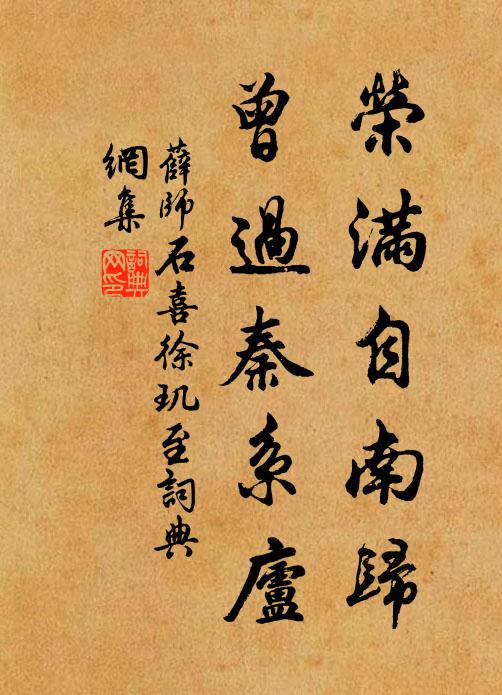 榮滿自南歸
曾過秦系廬
薛師石喜徐玑至詞典
網集
詞典
网印